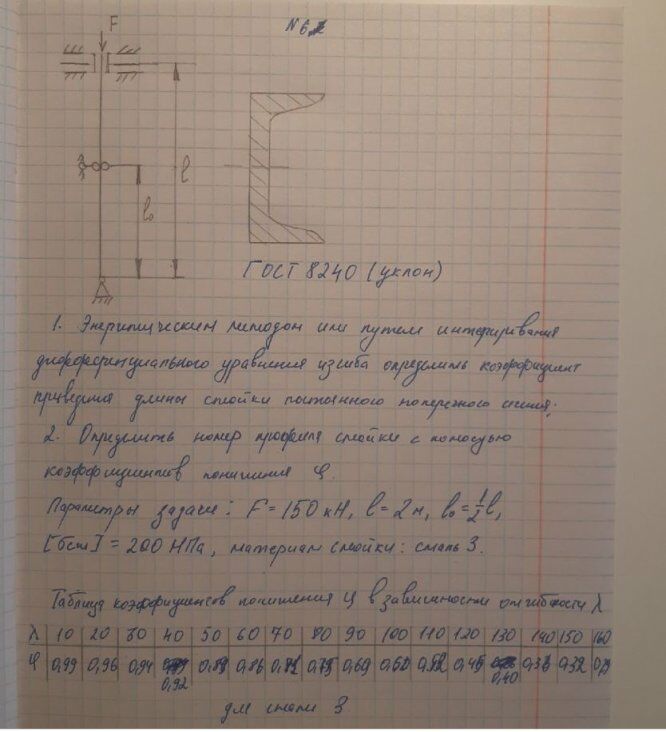 № 6
F
l
l₀
ГОСТ 8240 (уклон)
1. Энергитическим методом или путем интегриривания
дифференциального уравнения изгиба определить коэффициент
приведения длины стойки постоянного поперечного сечения;
2. Определить номер профиля стойки с помощью
коэффициентов понижения φ.
Параметры задачи: F = 150 кН, l = 2 м, l₀ = ½l,
[σсж] = 200 МПа, материал стойки: сталь 3.
Таблица коэффициентов понижения φ в зависимости от гибкости λ
λ 10 20 30 40 50 60 70 80 90 100 110 120 130 140 150 160
φ 0,99 0,96 0,94 0,92 0,89 0,86 0,81 0,75 0,69 0,60 0,52 0,45 0,40 0,36 0,32
для стали 3